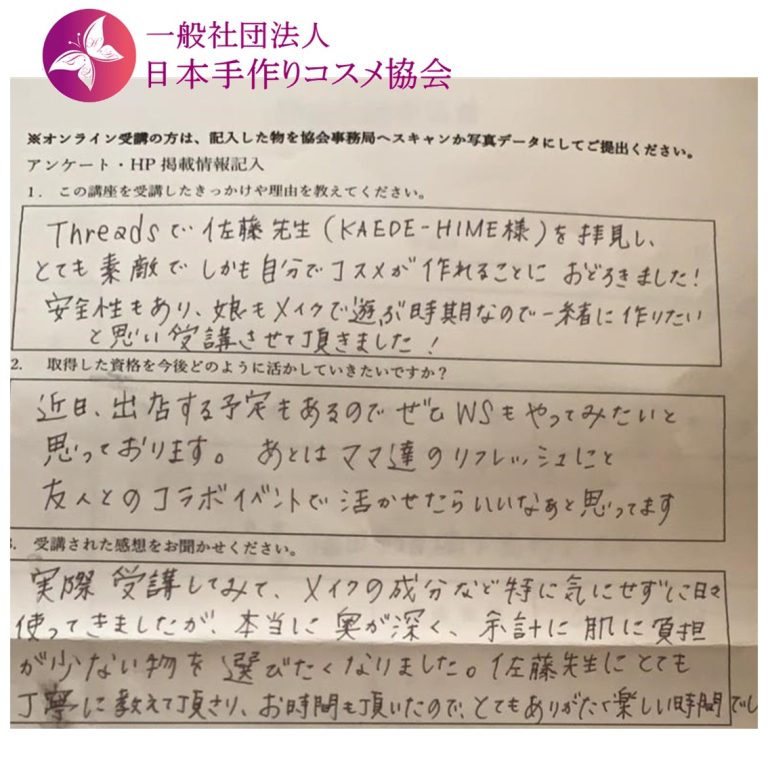 一般社団法人
日本手作りコスメ協会
※オンライン受講の方は、記入した物を協会事務局へスキャンか写真データにしてご提出ください。
アンケート・HP 掲載情報記入
1. この講座を受講したきっかけや理由を教えてください。
Threadsで佐藤先生(KAEDE-HIME様)を拝見し、
とても素敵でしかも自分でコスメが作れることにおどろきました!
安全性もあり、娘もメイクで遊ぶ時期なので一緒に作りたい
と思い受講させて頂きました!
2. 取得した資格を今後どのように活かしていきたいですか?
近日、出店する予定もあるのでぜひWSもやってみたいと
思っております。あとはママ達のリフレッシュにと
友人とのコラボイベントで活かせたらいいなあと思ってます
受講された感想をお聞かせください。
実際受講してみて、メイクの成分など特に気にせずに日々
使ってきましたが、本当に奥が深く、余計に肌に負担
が少ない物を選びたくなりました。佐藤先生にとても
丁寧に教えて頂さり、お時間も頂いたので、とてもありがたく楽しい時間でし